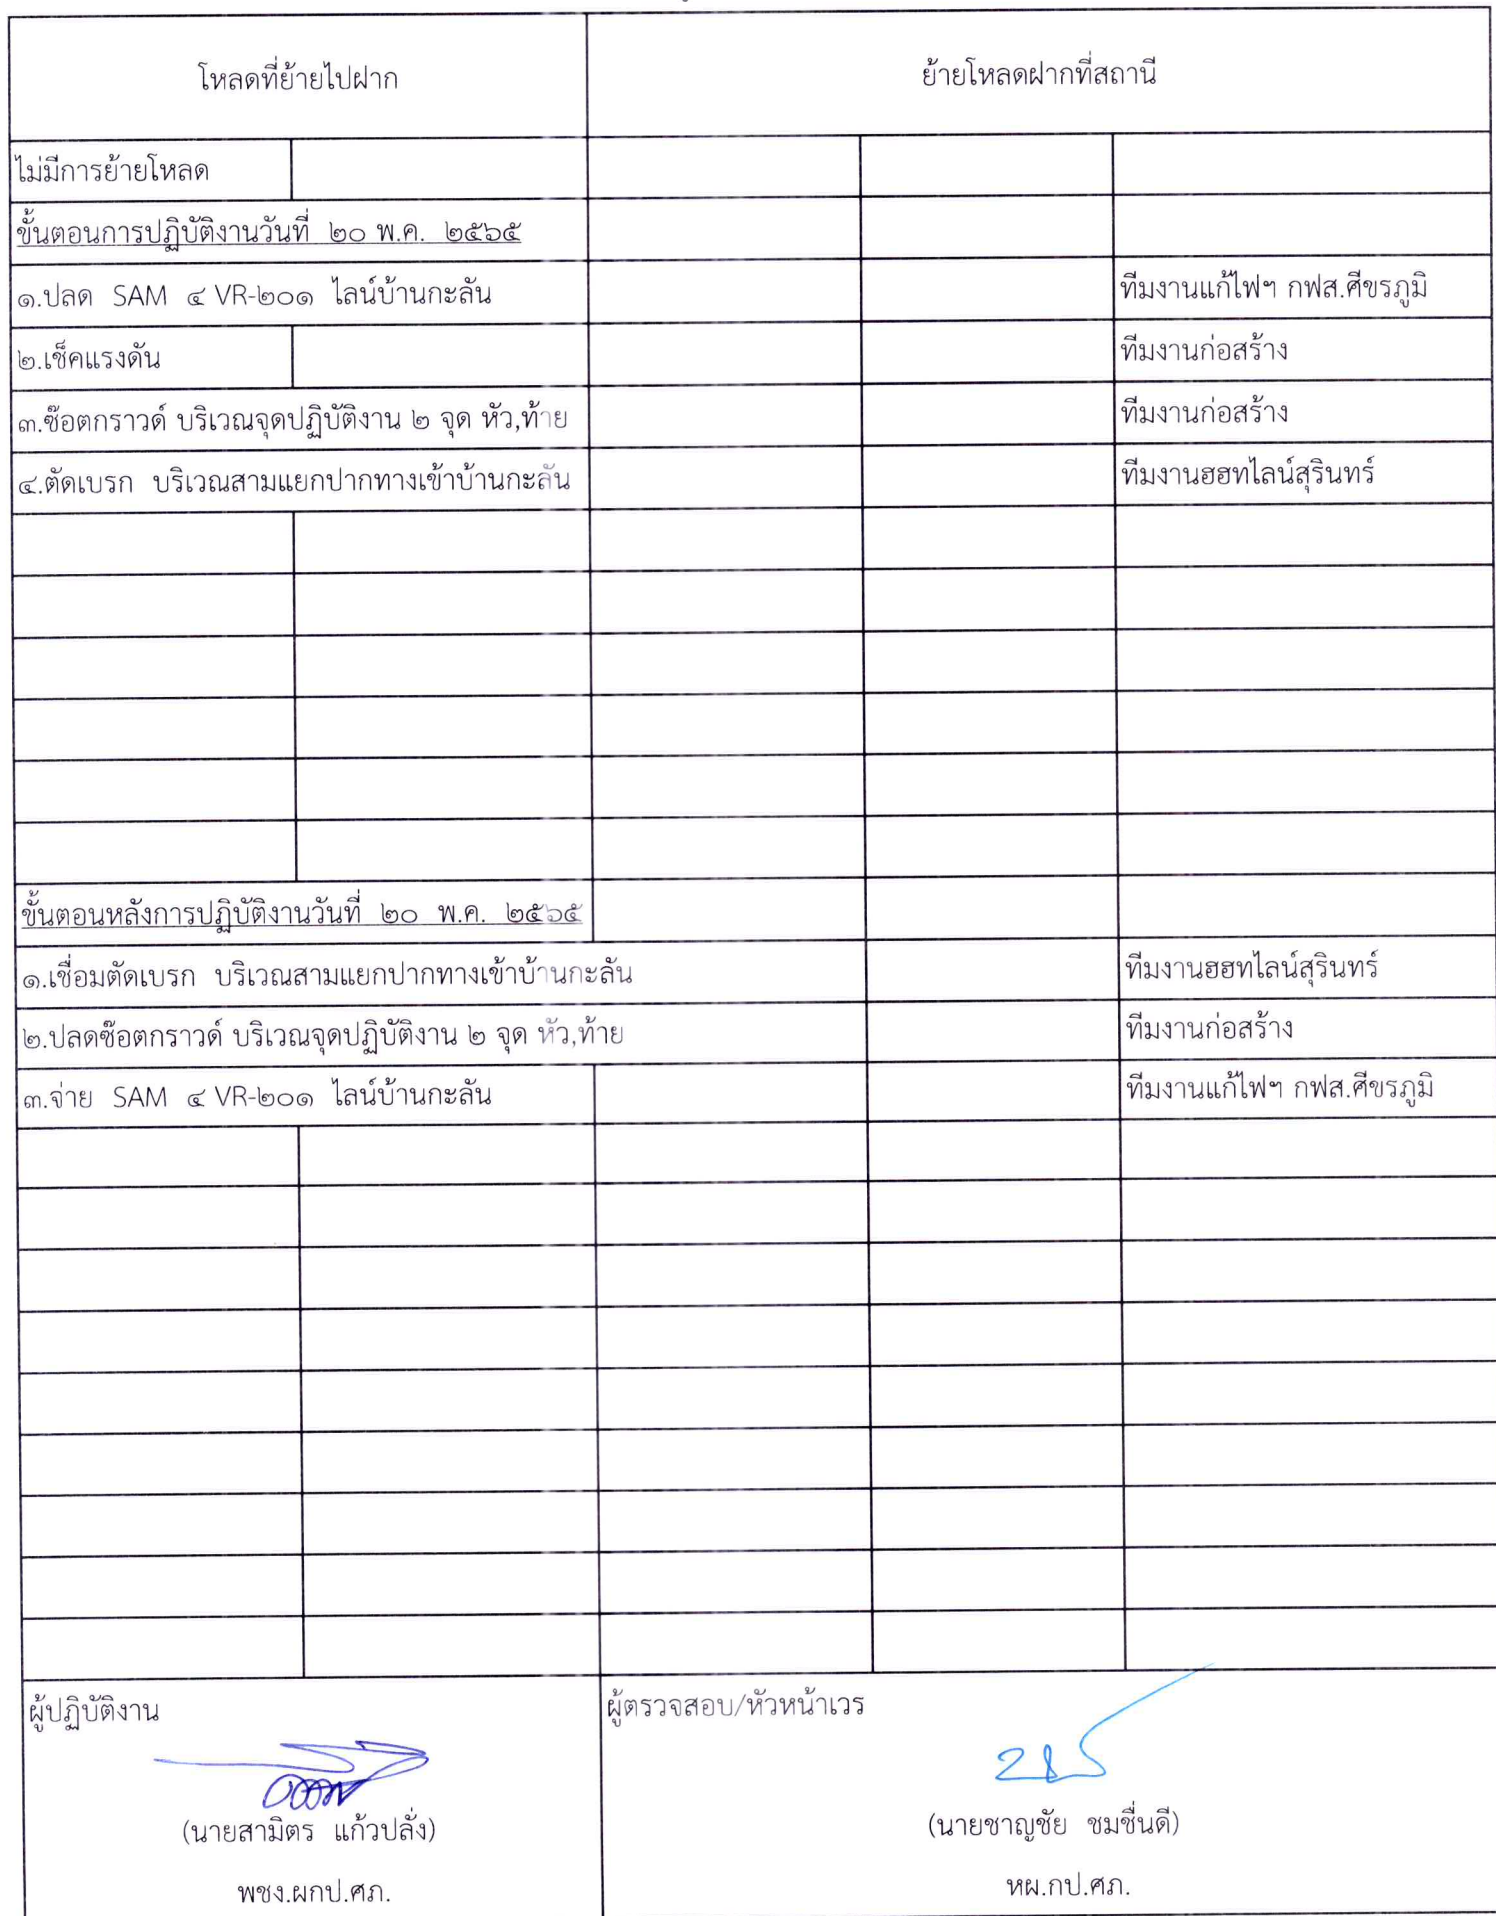 โหลดที่ย้ายไปฝาก ย้ายโหลดฝากที่สถานี
ไม่มีการย้ายโหลด
ขั้นตอนการปฏิบัติงานวันที่ ๒๐ พ.ค. ๒๕๖๕
๑.ปลด SAM ๔ VR-๒๐๑ ไลน์บ้านกะลัน ทีมงานแก้ไฟฯ กฟส.ศีขรภูมิ
๒.เช็คแรงดัน ทีมงานก่อสร้าง
๓.ช๊อตกราวด์ บริเวณจุดปฏิบัติงาน ๒ จุด หัว,ท้าย ทีมงานก่อสร้าง
๔.ตัดเบรก บริเวณสามแยกปากทางเข้าบ้านกะลัน ทีมงานฮฮทไลน์สุรินทร์
ขั้นตอนหลังการปฏิบัติงานวันที่ ๒๐ พ.ค. ๒๕๖๕
๑.เชื่อมตัดเบรก บริเวณสามแยกปากทางเข้าบ้านกะลัน ทีมงานฮฮทไลน์สุรินทร์
๒.ปลดช๊อตกราวด์ บริเวณจุดปฏิบัติงาน ๒ จุด หัว,ท้าย ทีมงานก่อสร้าง
๓.จ่าย SAM ๔ VR-๒๐๑ ไลน์บ้านกะลัน ทีมงานแก้ไฟฯ กฟส.ศีขรภูมิ
ผู้ปฏิบัติงาน ผู้ตรวจสอบ/หัวหน้าเวร
(นายสามิตร แก้วปลั่ง) (นายชาญชัย ชมชื่นดี)
พชง.ผกป.ศภ. หผ.กป.ศภ.